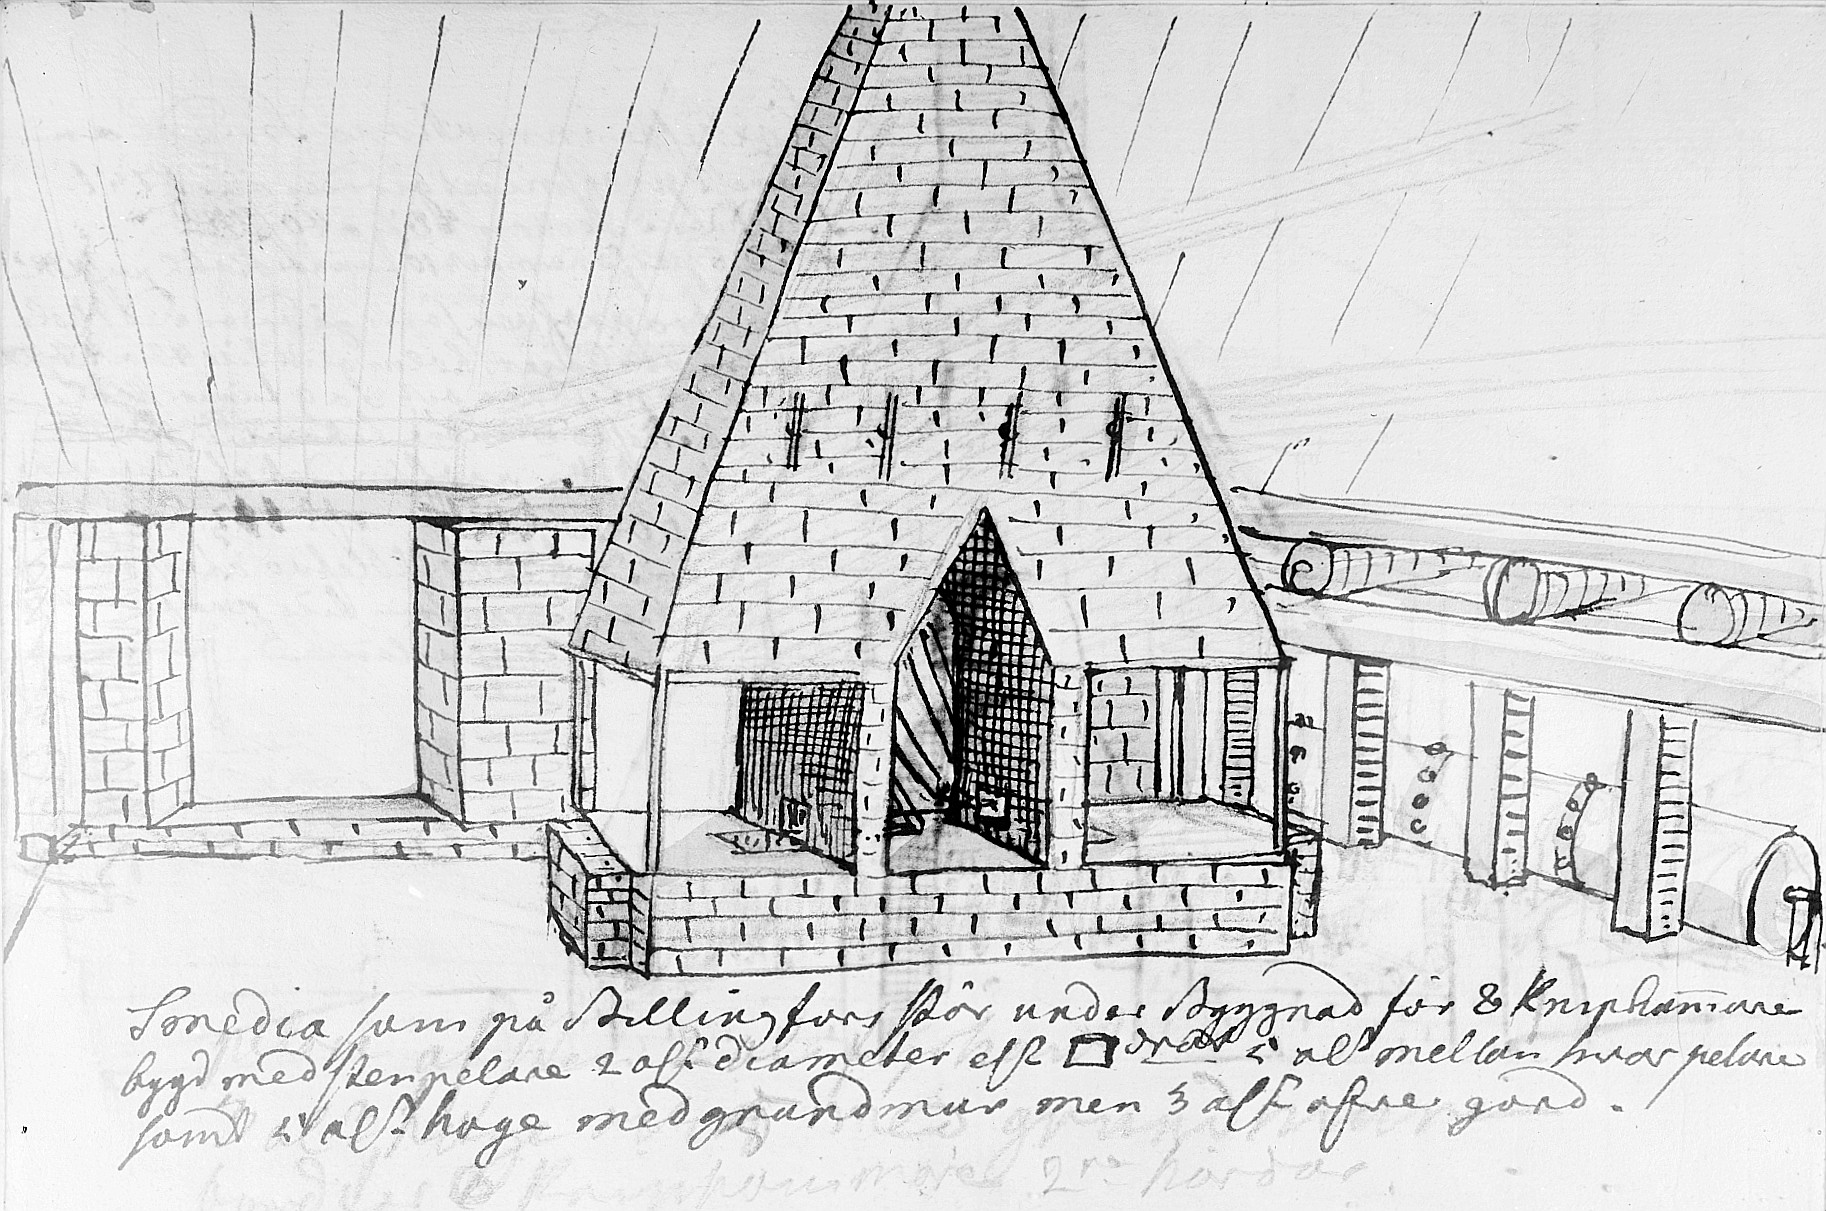 Smedia som på Bellingfors stör under Byggnad för 8 Kniphammare
bygd med stenpelare 2 aln diameter ell □ drat 5 aln mellan hvar pelare
samt 5 aln höge med grundmur men 3 aln ofre gord.